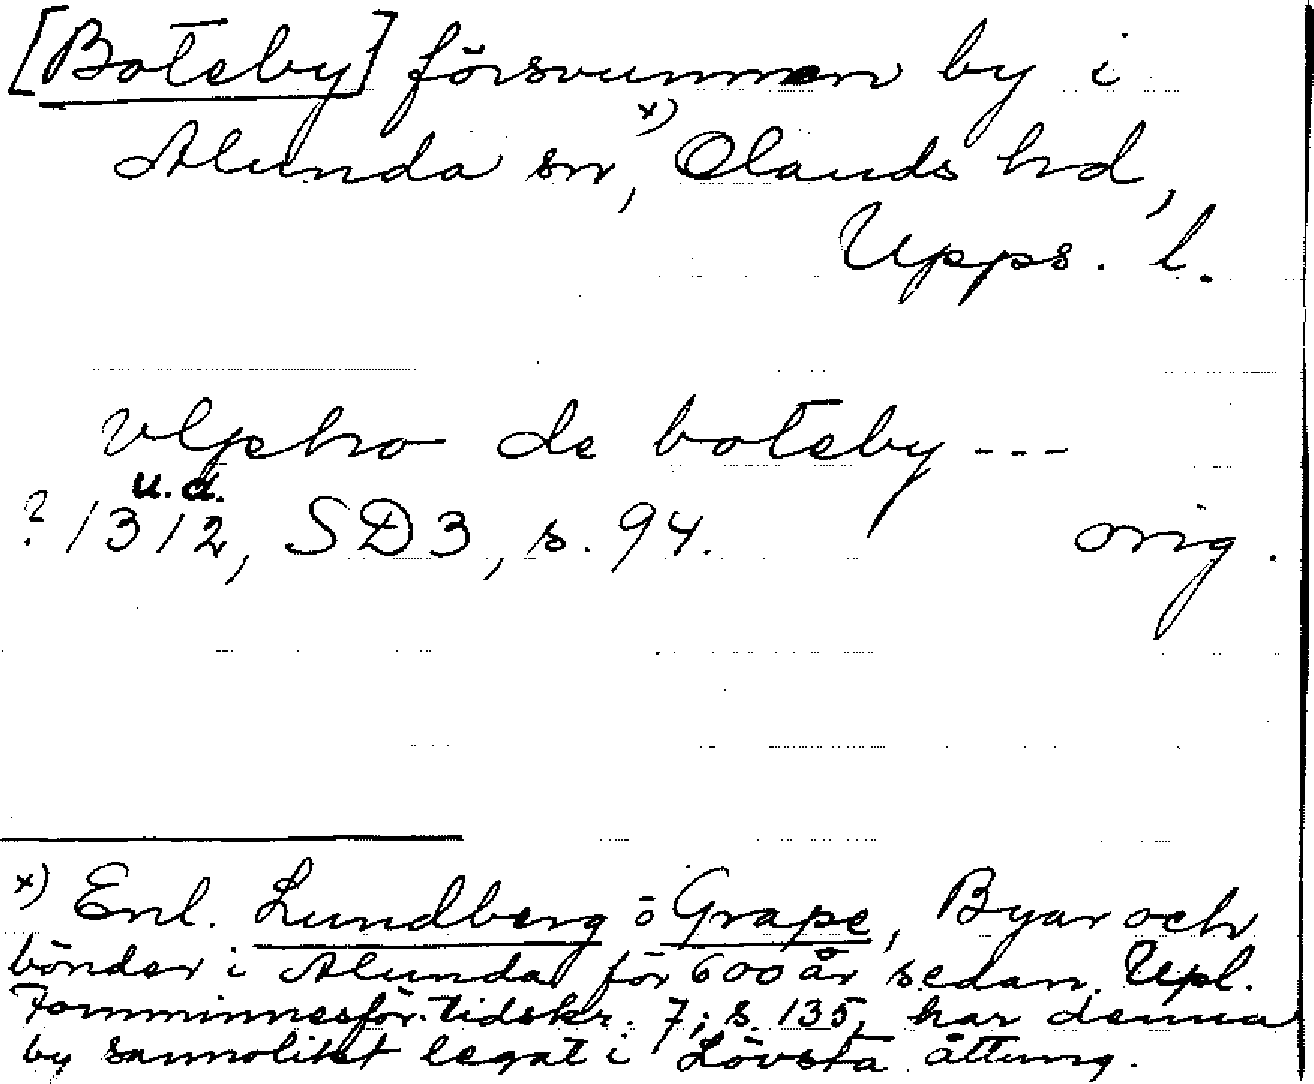 [Boteby] försvunnen by i
Alunda sn,ˣ⁾ Olands hd,
Upps. l.
vlpho de boteby ---
u.d.
? 1312, SD3, s. 94. orig.
x) Enl. Lundberg o Grape, Byar och
bönder i Alunda för 600 år sedan. Upl.
Fornminnesför. tidskr. 7; s. 135, har denna
by sannolikt legat i Lövsta åttung.